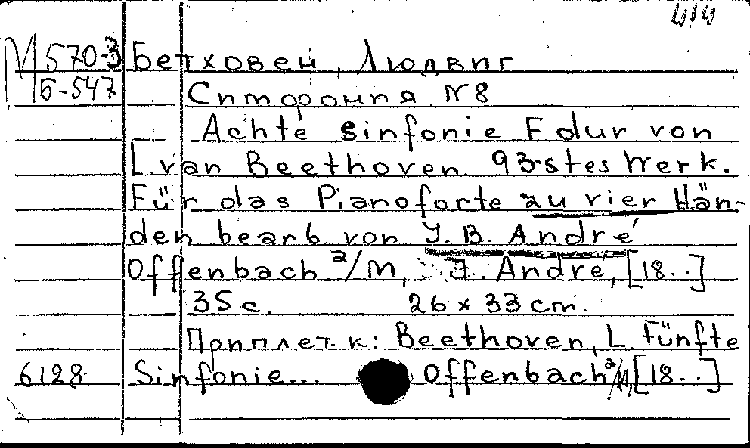 М 570-3 Бетховен, Людвиг
Б-547 Симфония N8
Achte Sinfonie F dur von
L. van Beethoven 93-stes Werk.
Für das Pianoforte zu vier Hän-
den bearb von J. B. André
Offenbach a/M, J. André, [18..]
35 c. 26 x 33 cm.
Приплет. к: Beethoven, L. Fünfte
6128 Sinfonie... Offenbach a/M, [18..]